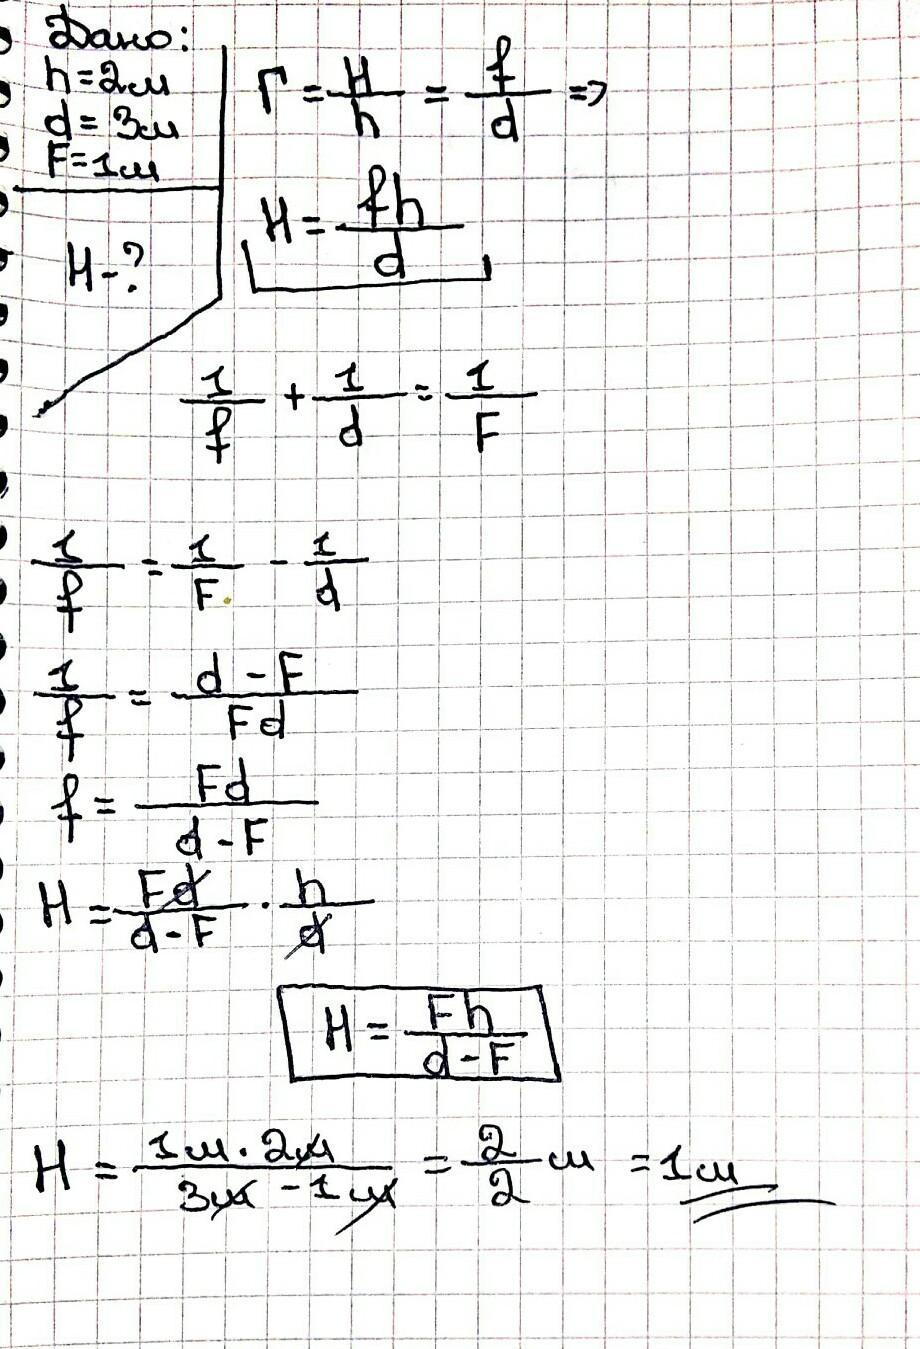 Дано:
h=2м
d=3м
F=1м
H-?
Γ = H/h = f/d =>
H = fh/d
1/f + 1/d = 1/F
1/f = 1/F - 1/d
1/f = d-F/Fd
f = Fd/d-F
H = Fd/d-F · h/d
H = Fh/d-F
H = 1м·2м/3м-1м = 2/2 м = 1м